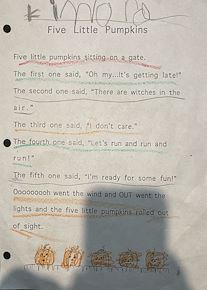 Kimora
Five Little Pumpkins
Five little pumpkins sitting on a gate.
The first one said, "Oh my...It's getting late!"
The second one said, "There are witches in the
air."
The third one said, "I don't care."
The fourth one said, "Let's run and run and
run!"
The fifth one said, "I'm ready for some fun!"
Oooooooh went the wind and OUT went the
lights and the five little pumpkins rolled out
of sight.